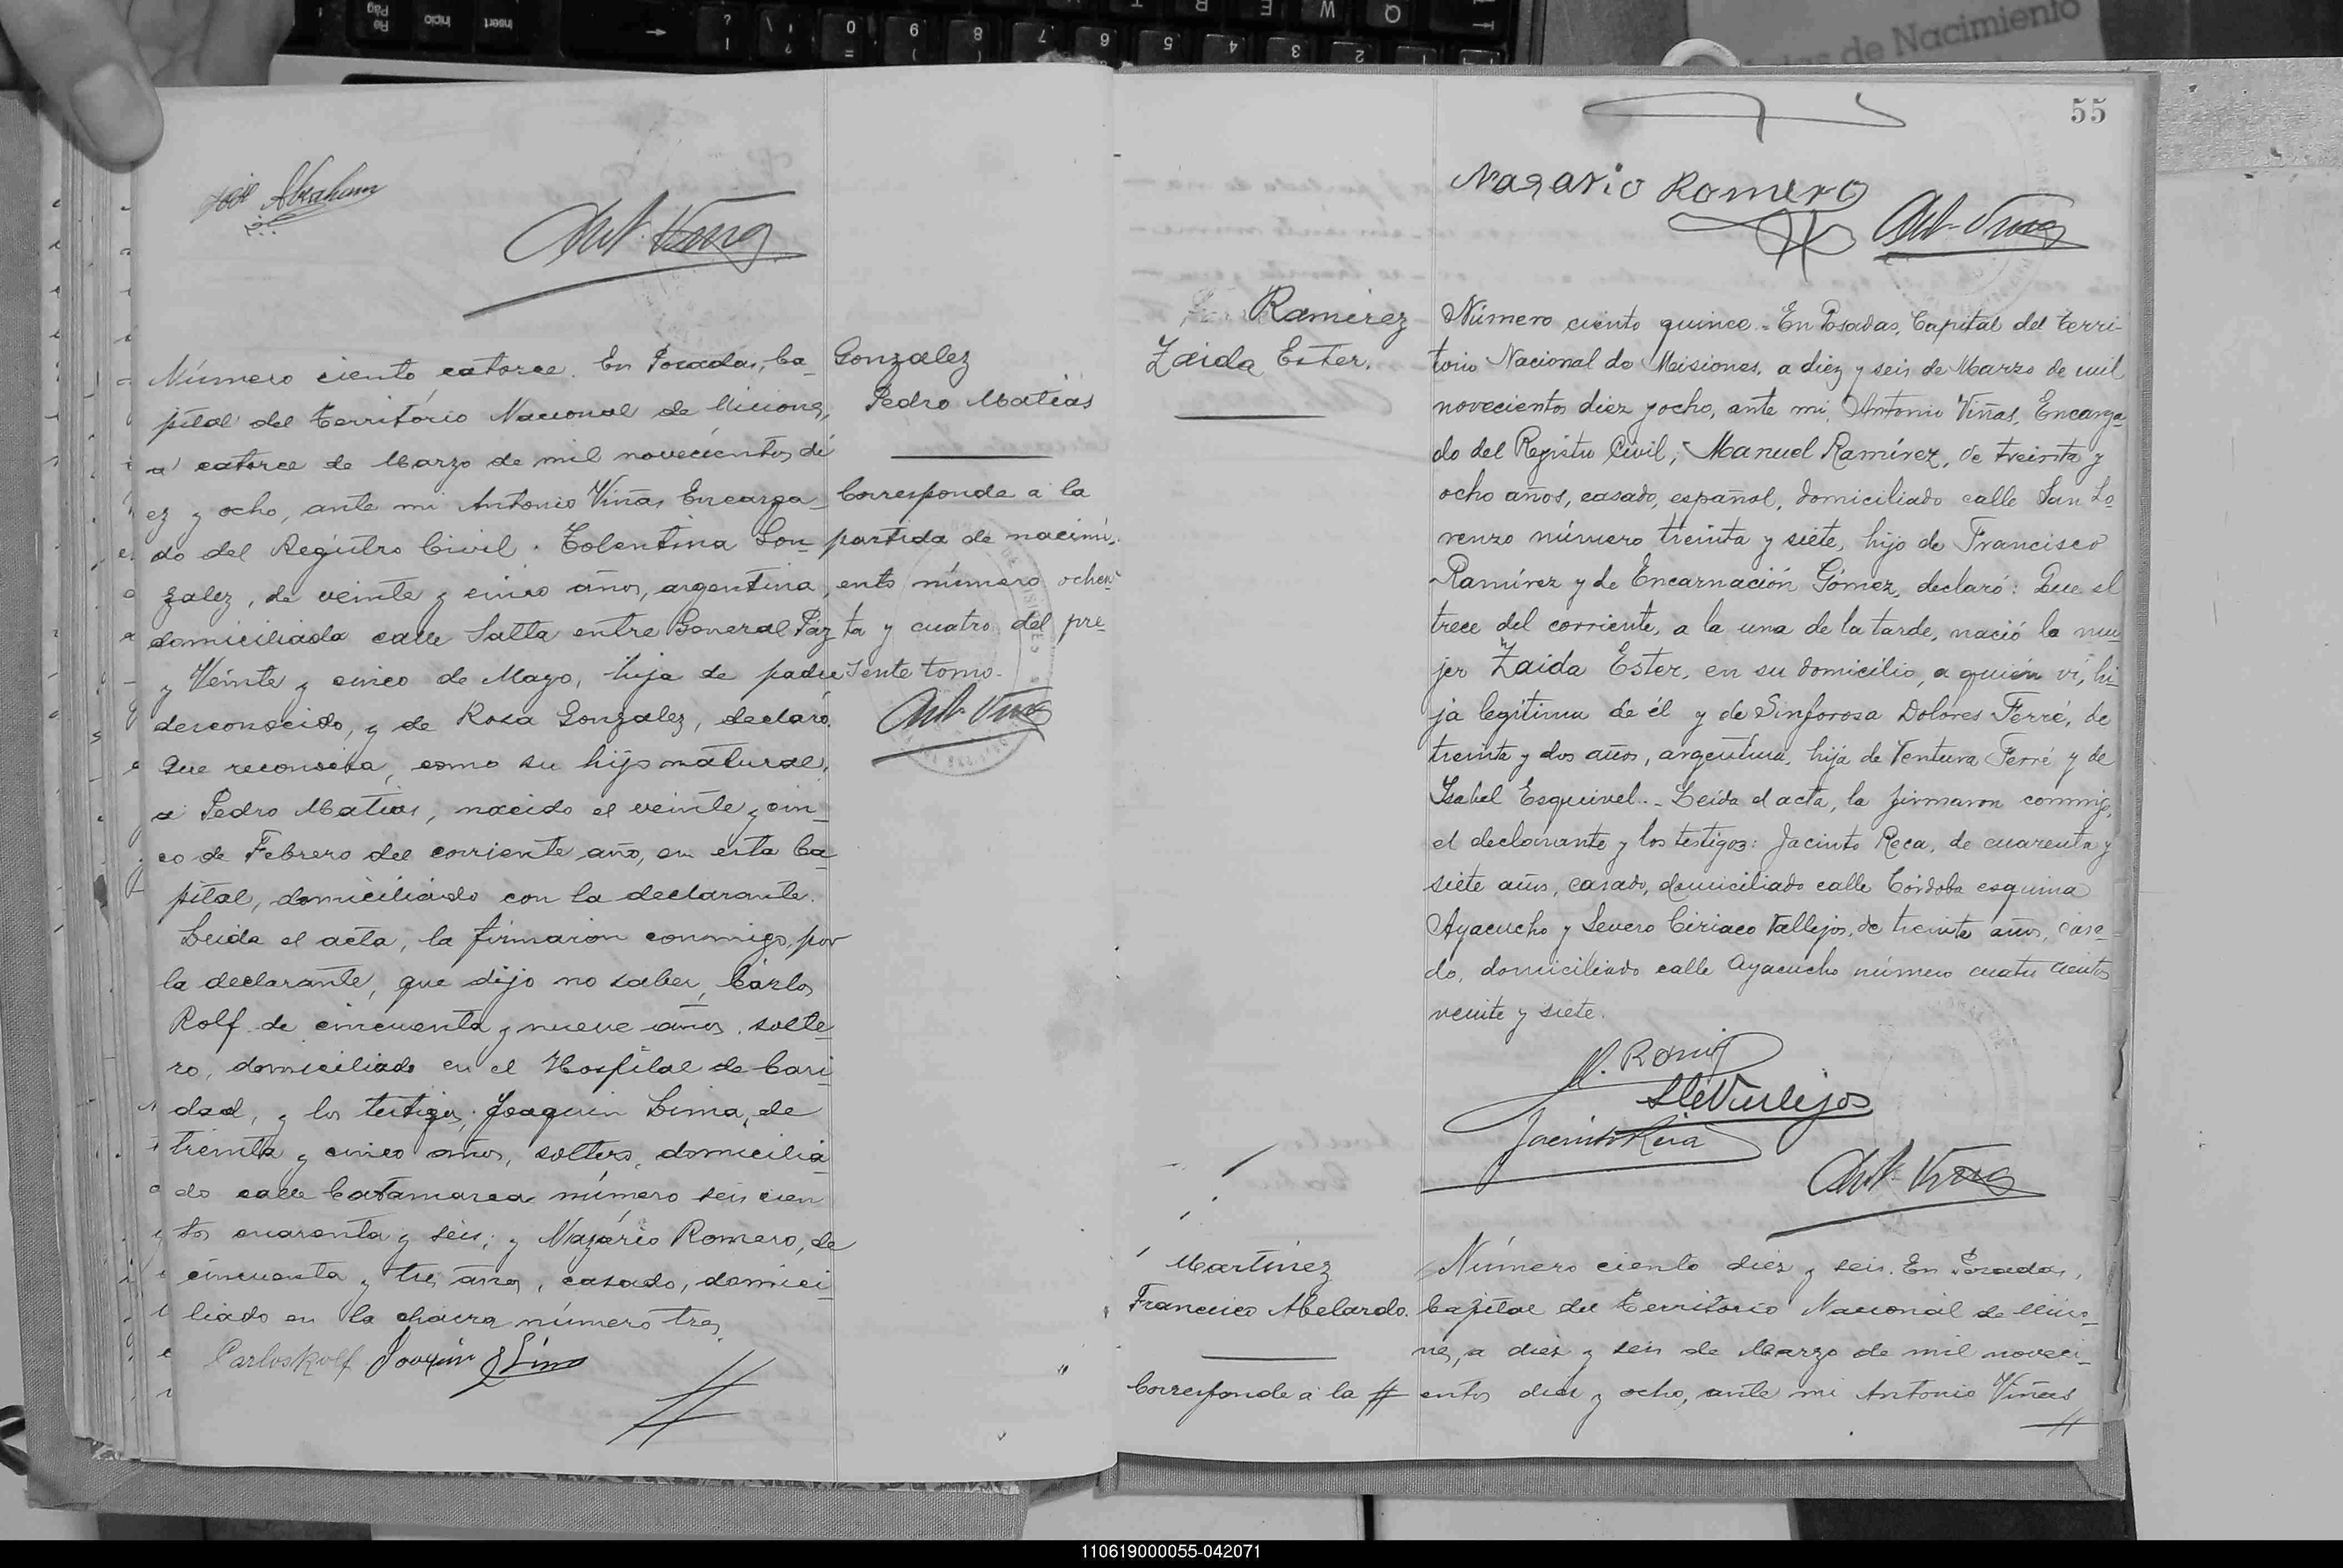 José Abraham
Ant. Viñas
Número ciento catorce. En Posadas, Ca-
pital del Territorio Nacional de Misiones,
a catorce de Marzo de mil novecientos di
ez y ocho, ante mi Antonio Viñas Encarga-
do del Registro Civil. Tolentina Gon-
zalez, de veinte y cinco años, argentina,
domiciliada calle Salta entre General Paz
y Veinte y cinco de Mayo, hija de padre
desconocido, y de Rosa Gonzalez, declaró.
Que reconocia, como su hijo natural,
a Pedro Matias, nacido el veinte y cin-
co de Febrero del corriente año, en esta Ca-
pital, domiciliado con la declarante.
Leida el acta, la firmaron conmigo, por
la declarante, que dijo no saber, Cárlos
Rolf de cincuenta y nueve años, solte-
ro, domiciliado en el Hospital de Cari-
dad, y los testigos, Joaquin Lima, de
treinta y cinco años, soltero, domicilia-
do calle Catamarca número seis cien
tos cuarenta y seis; y Nazário Romero, de
cincuenta y tres años, casado, domici-
liado en la chacra número tres.
Carlos Rolf Joaquin Lima
Gonzalez
Pedro Matias
Corresponde a la
partida de nacimi-
ento número ochen-
ta y cuatro del pre-
sente tomo.
Ant. Viñas
55
Nazario Romero
Ant. Viñas
Ramirez
Zaida Ester.
Número ciento quince. En Posadas, Capital del Terri-
torio Nacional de Misiones, a diez y seis de Marzo de mil
novecientos diez y ocho, ante mi, Antonio Viñas, Encarga-
do del Registro Civil, Manuel Ramírez, de treinta y
ocho años, casado, español, domiciliado calle San Lo-
renzo número treinta y siete, hijo de Francisco
Ramírez y de Encarnación Gómez, declaró: Que el
trece del corriente, a la una de la tarde, nació la mu-
jer Zaida Ester, en su domicilio, a quién ví, hi-
ja legítima de él y de Sinforosa Dolores Ferré, de
treinta y dos años, argentina, hija de Ventura Ferré y de
Isabel Esquivel. - Leída el acta, la firmaron conmigo,
el declarante y los testigos: Jacinto Reca, de cuarenta y
siete años, casado, domiciliado calle Córdoba esquina
Ayacucho y Severo Ciriaco Vallejos, de treinta años, casa-
do, domiciliado calle Ayacucho número cuatro cientos
veinte y siete.
S C Vallejos
Jacinto Reca
Ant. Viñas
Martínez
Francisco Abelardo.
Corresponde a la
Número ciento diez y seis. En Posadas,
Capital del Territorio Nacional de Misio-
nes, a diez y seis de Marzo de mil noveci-
entos diez y ocho, ante mi Antonio Viñas
de Nacimiento
110619000055-042071